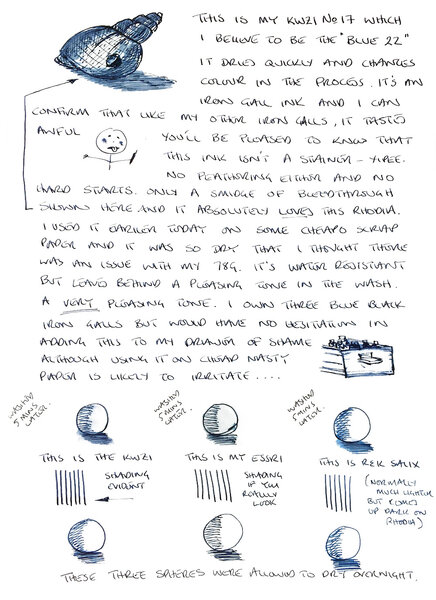 THIS IS MY KWZI No 17 WHICH
I BELIEVE TO BE THE "BLUE 22"
IT DRIES QUICKLY AND CHANGES
COLOUR IN THE PROCESS. IT'S AN
IRON GALL INK AND I CAN
CONFIRM THAT LIKE MY OTHER IRON GALLS, IT TASTES
AWFUL
YOU'LL BE PLEASED TO KNOW THAT
THIS INK ISN'T A STAINER - YIPEE.
NO FEATHERING EITHER AND NO
HARD STARTS. ONLY A SMIDGE OF BLEEDTHROUGH
SHOWN HERE AND IT ABSOLUTELY LOVES THIS RHODIA.
I USED IT EARLIER TODAY ON SOME CHEAPO SCRAP
PAPER AND IT WAS SO DRY THAT I THOUGHT THERE
WAS AN ISSUE WITH MY 78G. IT'S WATER RESISTANT
BUT LEAVES BEHIND A PLEASING TONE IN THE WASH.
A VERY PLEASING TONE. I OWN THREE BLUE BLACK
IRON GALLS BUT WOULD HAVE NO HESITATION IN
ADDING THIS TO MY DRAWER OF SHAME
ALTHOUGH USING IT ON CHEAP NASTY
PAPER IS LIKELY TO IRRITATE ....
WASHED
5 MINS
LATER.
WASHED
5 MINS
LATER.
WASHED
5 MINS
LATER.
THIS IS THE KWZI
SHADING
EVIDENT
THIS IS MY ESSRI
SHADING
IF YOU
REALLY
LOOK
THIS IS R&K SALIX
(NORMALLY
MUCH LIGHTER
BUT COMES
UP DARK ON
RHODIA)
THESE THREE SPHERES WERE ALLOWED TO DRY OVERNIGHT.